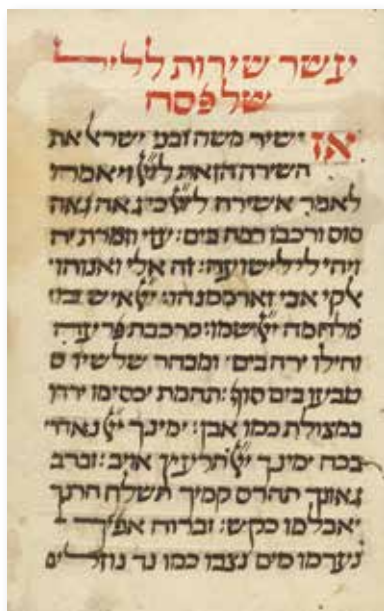 עשר שירות לליל
של פסח
אז ישיר משה ובני ישראל את
השירה הזאת לייי ויאמרו
לאמר אשירה לייי כי גאה גאה
סוס ורכבו רמה בים: עזי וזמרת יה
ויהי לי לישועה: זה אלי ואנוהו
אבי וארממנהו: ייי איש
מלחמה ייי שמו: מרכבת פרעה
וחילו ירה בים ומבחר שלישיו
טבעו בים סוף: תהמת יכסימו ירדו
במצולת כמו אבן: ימינך ייי נאדרי
בכח ימינך ייי תרעיץ אויב: וברב
גאונך תהרס קמיך תשלח חרנך
יאכלמו כקש: וברוח אפיך
נערמו מים נצבו כמו נד נוזלים